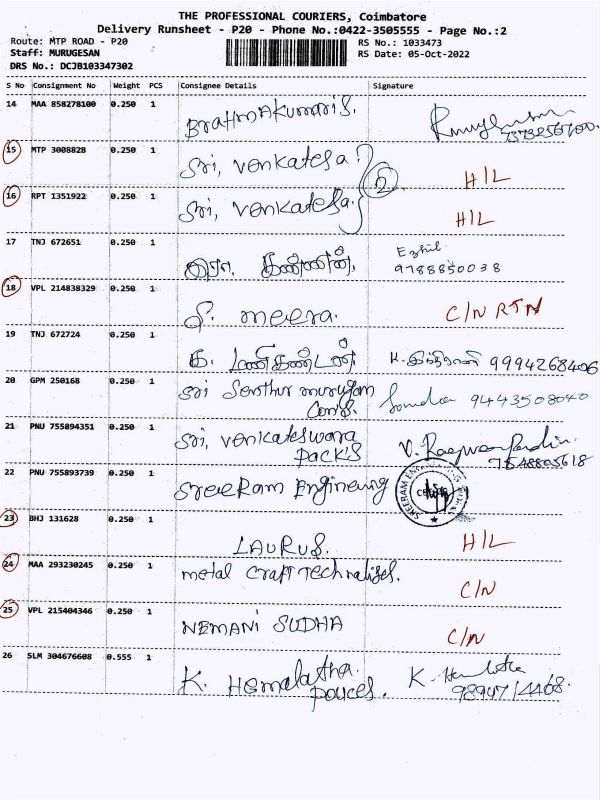 THE PROFESSIONAL COURIERS, Coimbatore
Delivery Runsheet - P20 - Phone No.:0422-3505555 - Page No.:2
Route: MTP ROAD - P20 RS No.: 1033473
Staff: MURUGESAN RS Date: 05-Oct-2022
DRS No.: DCJB103347302
S No Consignment No Weight PCS Consignee Details Signature
14 MAA 858278100 0.250 1
Brahmakumaris.
15 MTP 3008828 0.250 1
Sri, Venkatesa. H/L
2
16 RPT 1351922 0.250 1
Sri, Venkatesa. H/L
17 TNJ 672651 0.250 1
கண்ணன். Ezhil. 9788850038
18 VPL 214838329 0.250 1
meera. C/N RTN
19 TNJ 672724 0.250 1
க. மணிகண்டன். 9994268406
20 GPM 250168 0.250 1
Sri Senthur murugan 9443508040
21 PNU 755894351 0.250 1
Sri, Venkateswara
Packs
22 PNU 755893739 0.250 1
SreeRam Engineering
23 BHJ 131628 0.250 1
LAURUS. H/L
24 MAA 293230245 0.250 1
metal craft C/N
25 VPL 215404346 0.250 1
NEMANI SUDHA C/N
26 SLM 304676608 0.555 1
K. Hemalatha. K. Hemlatha
9894714468.